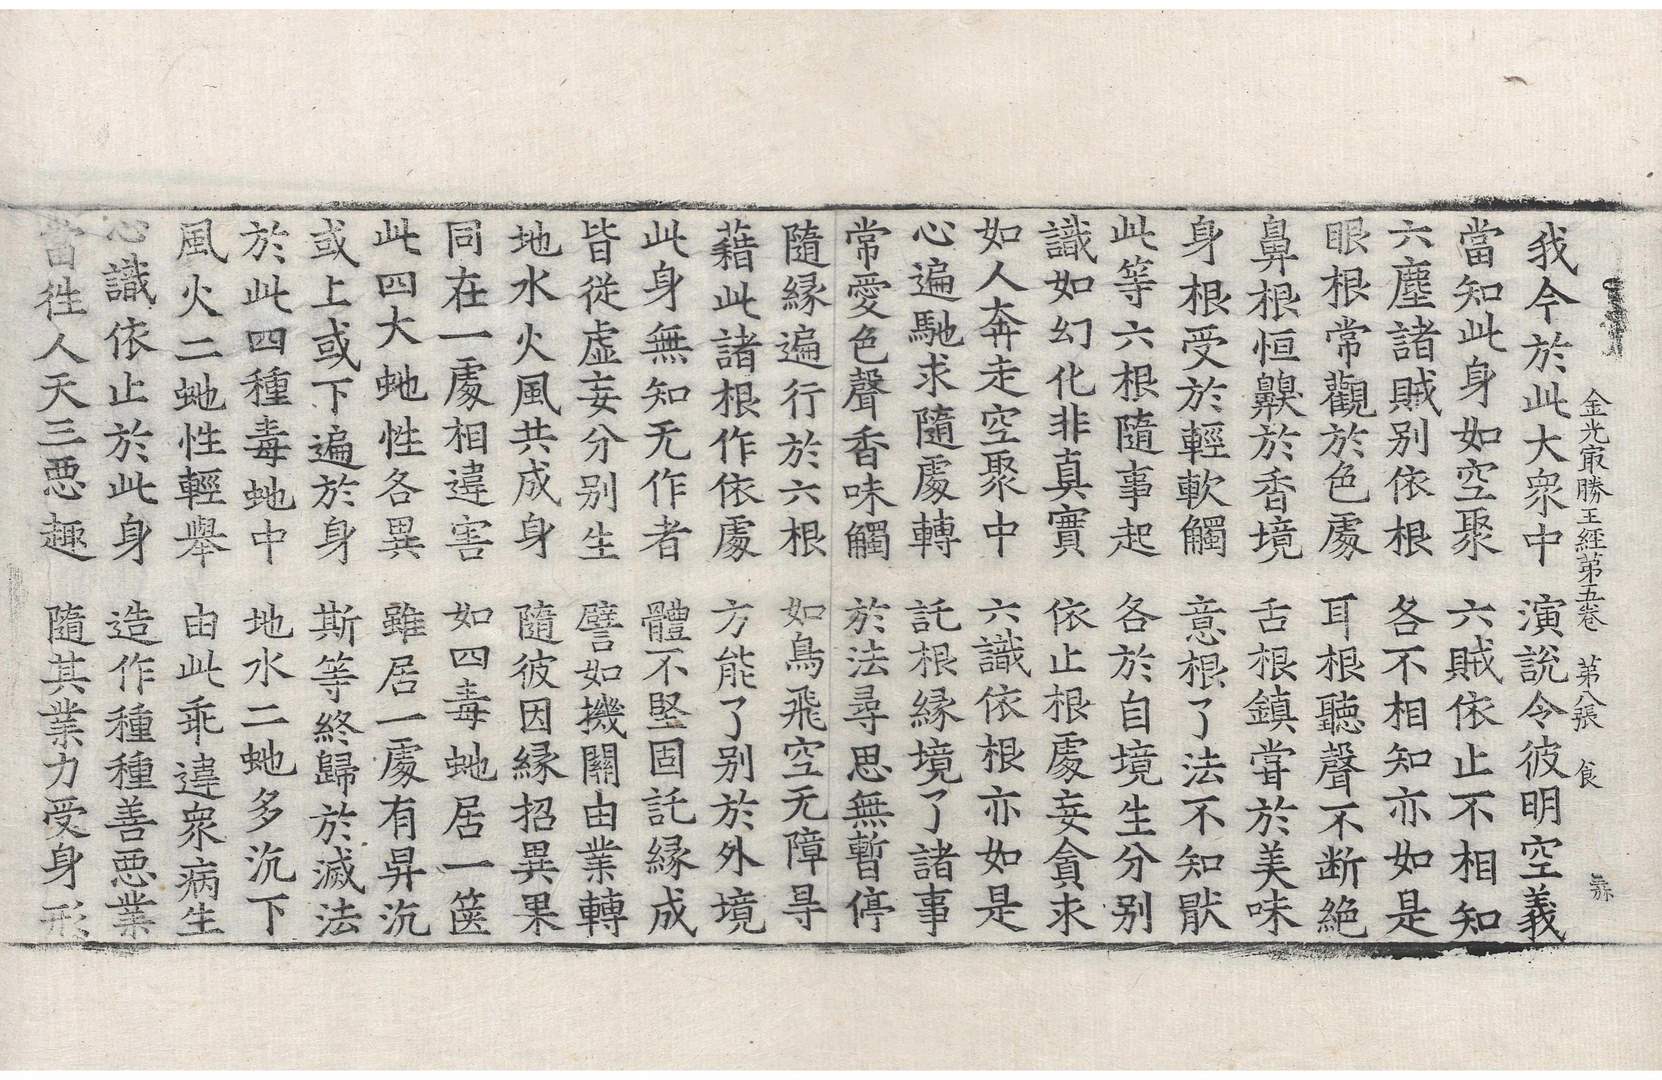 金光㝡勝王經第五卷　第八張　食　𢑱
我今於此大衆中　演說令彼明空義
當知此身如空聚　六賊依止不相知
六塵諸賊別依根　各不相知亦如是
眼根常觀於色處　耳根聽聲不断絶
鼻根恒齅於香境　舌根鎮甞於美味
身根受於輕軟觸　意根了法不知猒
此等六根隨事起　各於自境生分别
識如幻化非真實　依止根處妄貪求
如人奔走空聚中　六識依根亦如是
心遍馳求隨處轉　託根縁境了諸事
常愛色聲香味觸　於法尋思無暫停
隨縁遍行於六根　如鳥飛空无障㝵
藉此諸根作依處　方能了别於外境
此身無知无作者　體不堅固託縁成
皆從虛妄分别生　譬如機關由業轉
地水火風共成身　隨彼因縁招異果
同在一處相違害　如四毒虵居一篋
此四大虵性各異　雖居一處有昇沉
或上或下遍於身　斯等終歸於滅法
於此四種毒虵中　地水二虵多沉下
風火二虵性輕舉　由此乖違衆病生
心識依止於此身　造作種種善惡業
當徃人天三惡趣　隨其業力受身形